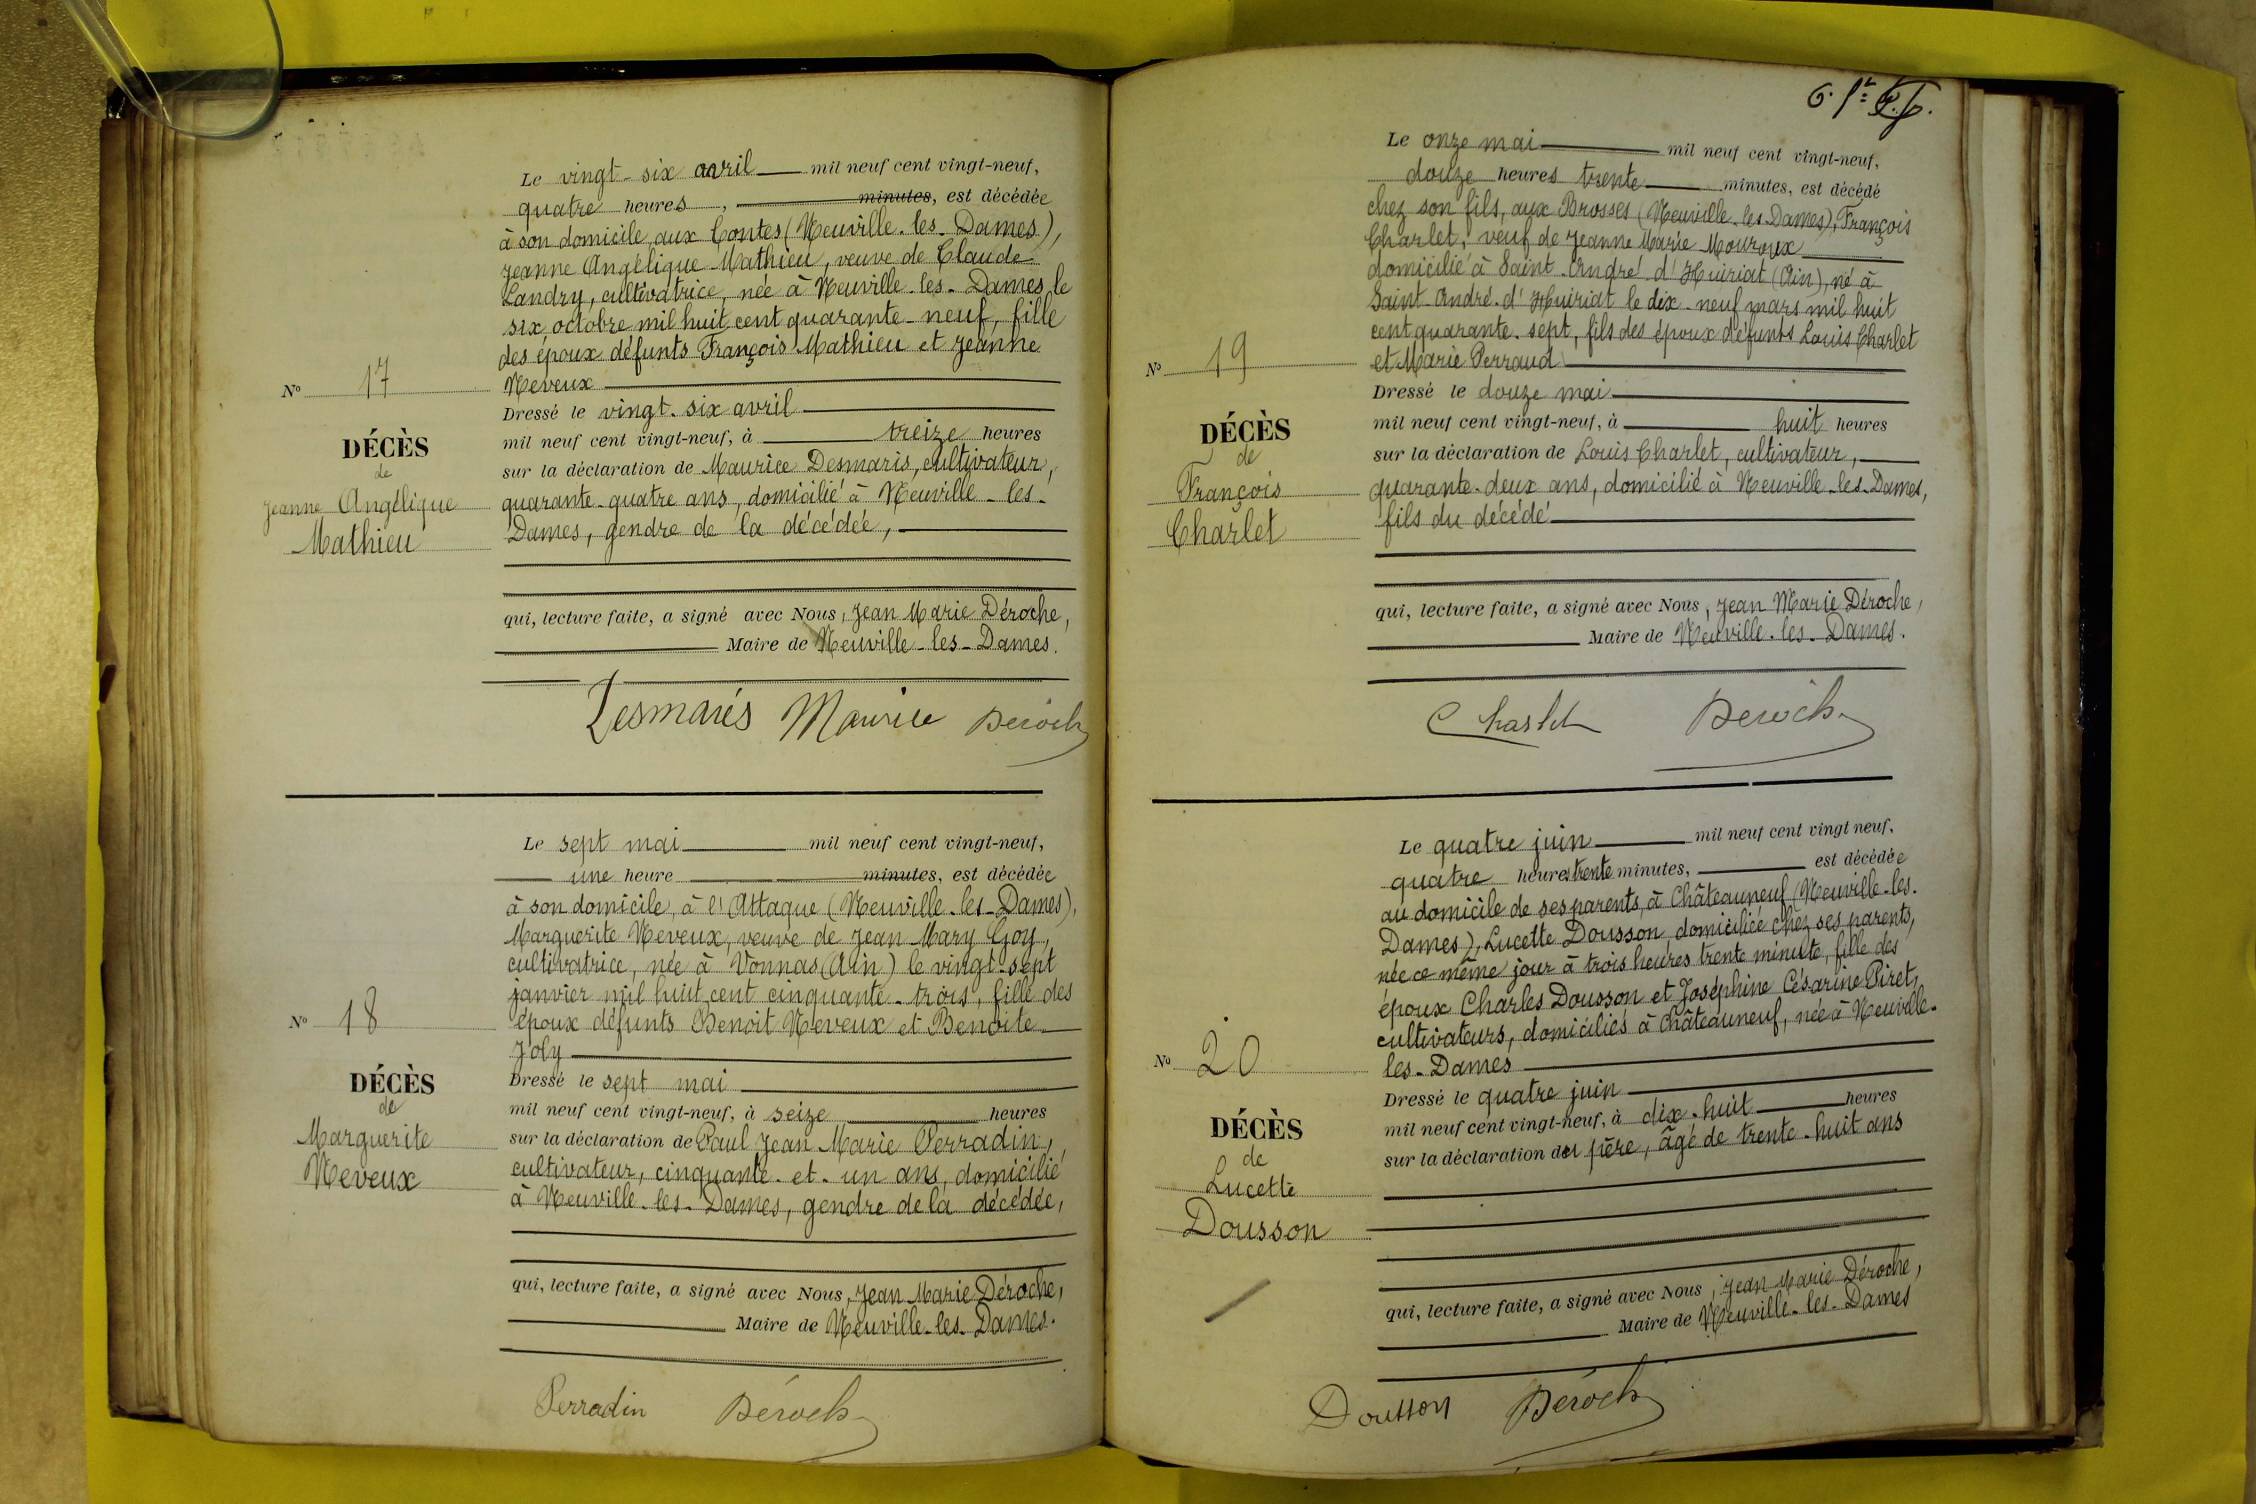 Le vingt-six avril mil neuf cent vingt-neuf,
quatre heures, minutes, est décédée
à son domicile aux Contes (Neuville-les-Dames),
Jeanne Angélique Mathieu, veuve de Claude
Landry, cultivatrice, née à Neuville-les-Dames le
six octobre mil huit cent quarante-neuf, fille
des époux défunts François Mathieu et Jeanne
Neveux
Dressé le vingt-six avril
mil neuf cent vingt-neuf, à treize heures
sur la déclaration de Maurice Desmaris, cultivateur,
quarante-quatre ans, domicilié à Neuville-les-
Dames, gendre de la décédée,
qui, lecture faite, a signé avec Nous, Jean Marie Déroche,
Maire de Neuville-les-Dames.
N° 17
DÉCÈS
de
Jeanne Angélique
Mathieu
Desmarés Maurice Déroche
Le sept mai mil neuf cent vingt-neuf,
une heure minutes, est décédée
à son domicile, à l'Attaque (Neuville-les-Dames),
Marguerite Neveux, veuve de Jean Mary Goy,
cultivatrice, née à Vonnas (Ain) le vingt-sept
janvier mil huit cent cinquante-trois, fille des
époux défunts Benoit Neveux et Benoite
Joly
Dressé le sept mai
mil neuf cent vingt-neuf, à seize heures
sur la déclaration de Paul Jean Marie Perradin,
cultivateur, cinquante-et-un ans, domicilié
à Neuville-les-Dames, gendre de la décédée,
qui, lecture faite, a signé avec Nous, Jean Marie Déroche,
Maire de Neuville-les-Dames.
N° 18
DÉCÈS
de
Marguerite
Neveux
Perradin Déroche
Le onze mai mil neuf cent vingt-neuf,
douze heures trente minutes, est décédé
chez son fils, aux Brosses (Neuville-les-Dames), François
Charlet, veuf de Jeanne Marie Mouroux
domicilié à Saint-André-d'Huiriat (Ain), né à
Saint-André-d'Huiriat le dix-neuf mars mil huit
cent quarante-sept, fils des époux défunts Louis Charlet
et Marie Perraud
Dressé le douze mai
mil neuf cent vingt-neuf, à huit heures
sur la déclaration de Louis Charlet, cultivateur,
quarante-deux ans, domicilié à Neuville-les-Dames,
fils du décédé
qui, lecture faite, a signé avec Nous, Jean Marie Déroche,
Maire de Neuville-les-Dames.
N° 19
DÉCÈS
de
François
Charlet
Charlet Déroche
Le quatre juin mil neuf cent vingt neuf,
quatre heures trente minutes, est décédée
au domicile de ses parents, à Châteauneuf (Neuville-les-
Dames), Lucette Dousson, domiciliée chez ses parents,
née ce même jour à trois heures trente minute, fille des
époux Charles Dousson et Joséphine Césarine Piret,
cultivateurs, domiciliés à Châteauneuf, née à Neuville-
les-Dames
Dressé le quatre juin
mil neuf cent vingt-neuf, à dix-huit heures
sur la déclaration du père, âgé de trente-huit ans
qui, lecture faite, a signé avec Nous, Jean Marie Déroche,
Maire de Neuville-les-Dames
N° 20
DÉCÈS
de
Lucette
Dousson
Dousson Déroche